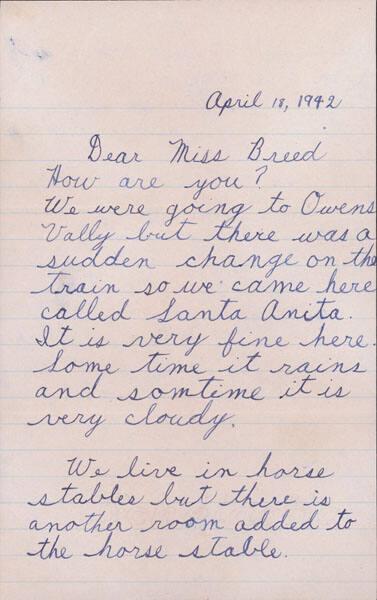 April 18, 1942
Dear Miss Breed
How are you?
We were going to Owens
Vally but there was a
sudden change on the
train so we came here
called Santa Anita.
It is very fine here.
Some time it rains
and somtime it is
very cloudy.
We live in horse
stables but there is
another room added to
the horse stable.